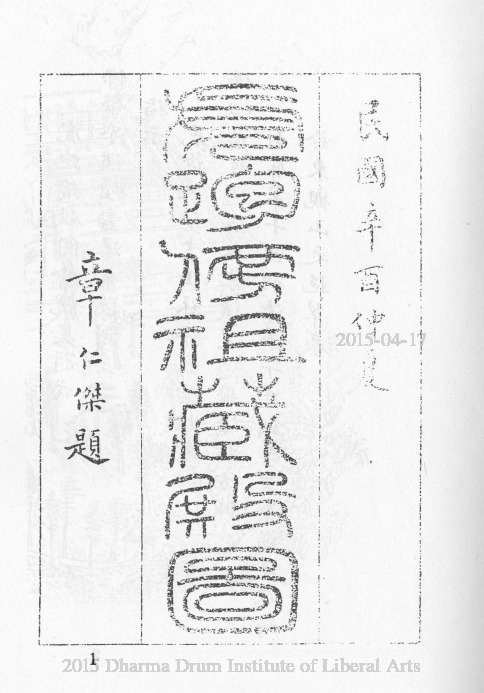 民國辛酉仲夏
祖藏殿圖
章仁傑題
1
2015-04-17
2015 Dharma Drum Institute of Liberal Arts